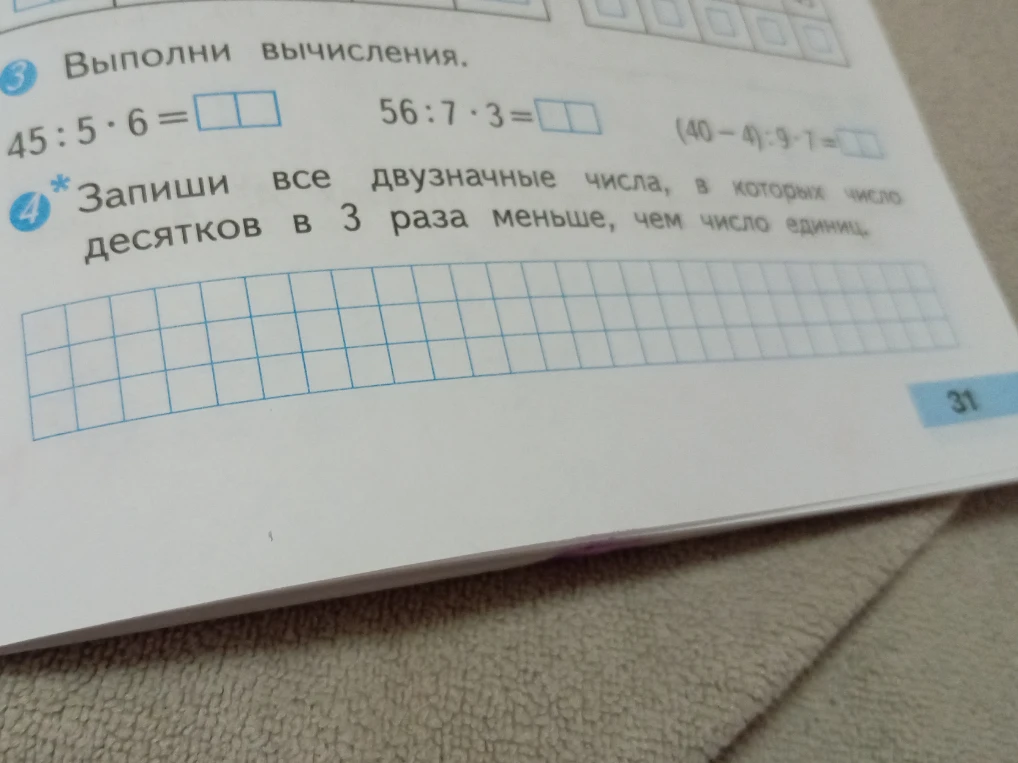 3 Выполни вычисления.
45 : 5 · 6 = 56 : 7 · 3 = (40 − 4) : 9 · 7 =
4 * Запиши все двузначные числа, в которых число
десятков в 3 раза меньше, чем число единиц.
31